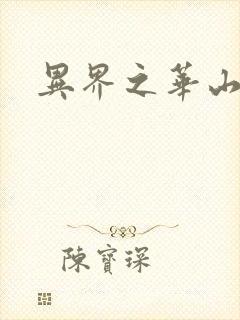 異界之華山
陳寶琛